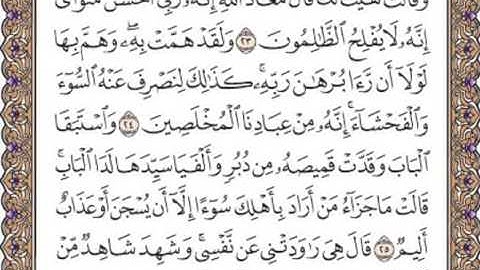 وَقَالَتْ هَيْتَ لَكَ قَالَ مَعَاذَ ٱللَّهِ إِنَّهُۥ رَبِّىٓ أَحْسَنَ مَثْوَاىَ
إِنَّهُۥ لَا يُفْلِحُ ٱلظَّٰلِمُونَ ٢٣ وَلَقَدْ هَمَّتْ بِهِۦ وَهَمَّ بِهَا
لَوْلَآ أَن رَّءَا بُرْهَٰنَ رَبِّهِۦ كَذَٰلِكَ لِنَصْرِفَ عَنْهُ ٱلسُّوٓءَ
وَٱلْفَحْشَآءَ إِنَّهُۥ مِنْ عِبَادِنَا ٱلْمُخْلَصِينَ ٢٤ وَٱسْتَبَقَا
ٱلْبَابَ وَقَدَّتْ قَمِيصَهُۥ مِن دُبُرٍ وَأَلْفَيَا سَيِّدَهَا لَدَا ٱلْبَابِ
قَالَتْ مَا جَزَآءُ مَنْ أَرَادَ بِأَهْلِكَ سُوٓءًا إِلَّآ أَن يُسْجَنَ أَوْ عَذَابٌ
أَلِيمٌ ٢٥ قَالَ هِىَ رَٰوَدَتْنِى عَن نَّفْسِى وَشَهِدَ شَاهِدٌ مِّنْ